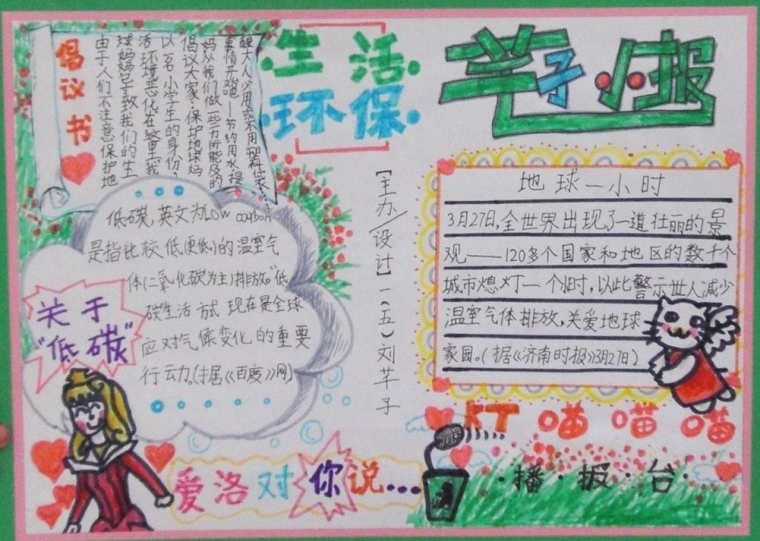 倡议书
由于人们不注意保护地
球妈妈已导致我们的生
活环境恶化在这里我
以一名小学生的身份
倡议大家:保护地球妈
妈从我们做一些力所能及的
事情开始——节约用水提
醒大人少用或不用塑料袋
·生活·
·环保·
芊子小报
低碳,英文为low carbon
是指比较低(更低)的温室气
体(二氧化碳为主)排放。"低
碳生活方式现在是全球
应对气候变化的重要
行动。(据《百度》网)
关于
"低碳"
【主办/设计】一(五)刘芊子
地球一小时
3月27日,全世界出现了一道壮丽的景
观——120多个国家和地区的数千个
城市熄灯一个小时,以此警示世人减少
温室气体排放,关爱地球
家园。(据《济南时报》3月27日)
爱洛对你说...
KT喵喵喵
·播·报·台·